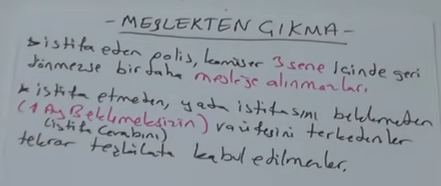 - MESLEKTEN ÇIKMA -
istifa eden polis, komiser 3 sene içinde geri
dönmezse bir daha mesleğe alınmazlar.
* istifa etmeden, yada istifasını beklemeden
(1 Ay Beklemeksizin) vazifesini terkedenler
(istifa Cevabını)
tekrar teşkilata kabul edilmezler.